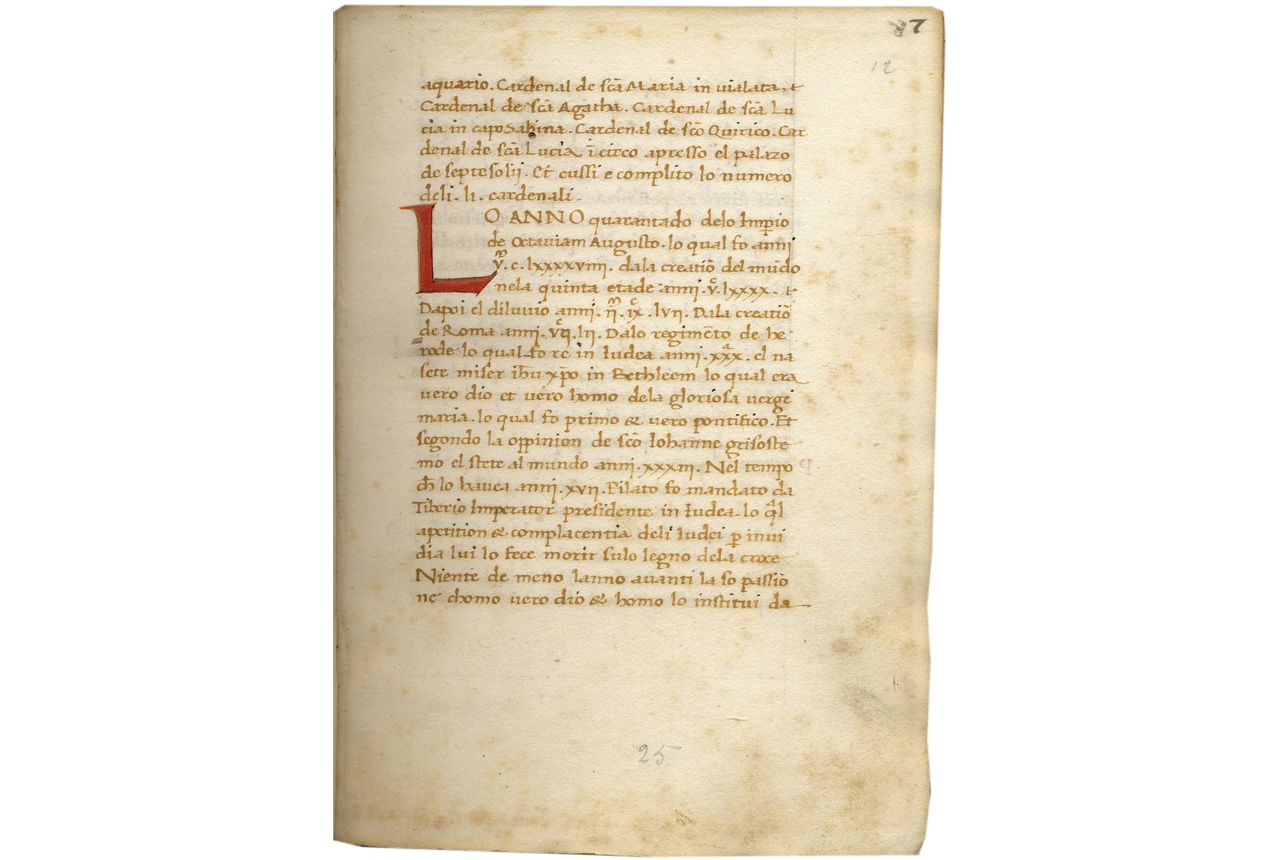 87
12
aquario. Cardenal de scā Maria in uialata. &
Cardenal de scā Agatha. Cardenal de scā Lu
cia in capo Sabina. Cardenal de scō Quirico. Car
denal de scā Lucia ī circo apresso el palazo
de septesolij. Et cussi e complito lo numero
deli. li. cardenali.
LO ANNO quarantado delo Imp̄io
de Octauiam Augusto. lo qual fo anni
v̄. c. lxxxxviiij. dala creatiō del mūdo
nela quinta etade anni. v̄. lxxxx. &
Dapoi el diluuio anni. ij. ix. lvij. Dala creatiō
de Roma anni. vij. lij. Dalo regimēto de he
rode lo qual fo re in Iudea anni. xxx. el na
sete miser ihū xp̄o in Bethleem lo qual era
uero dio et uero homo dela gloriosa uergē
maria. lo qual fo primo & uero pontifico. Et
segondo la oppinion de scō Iohanne grisoste
mo el stete al mundo anni. xxxiij. Nel tempo
ch̄ lo hauea anni. xvij. Pilato fo mandato da
Tiberio Imperator presidente in Iudea. lo q̄l
apetition & complacentia deli Iudei p̄ inui
dia lui lo fece morir sulo legno dela croce
Niente de meno lanno auanti la so passiō
ne chomo uero dio & homo lo institui da
25